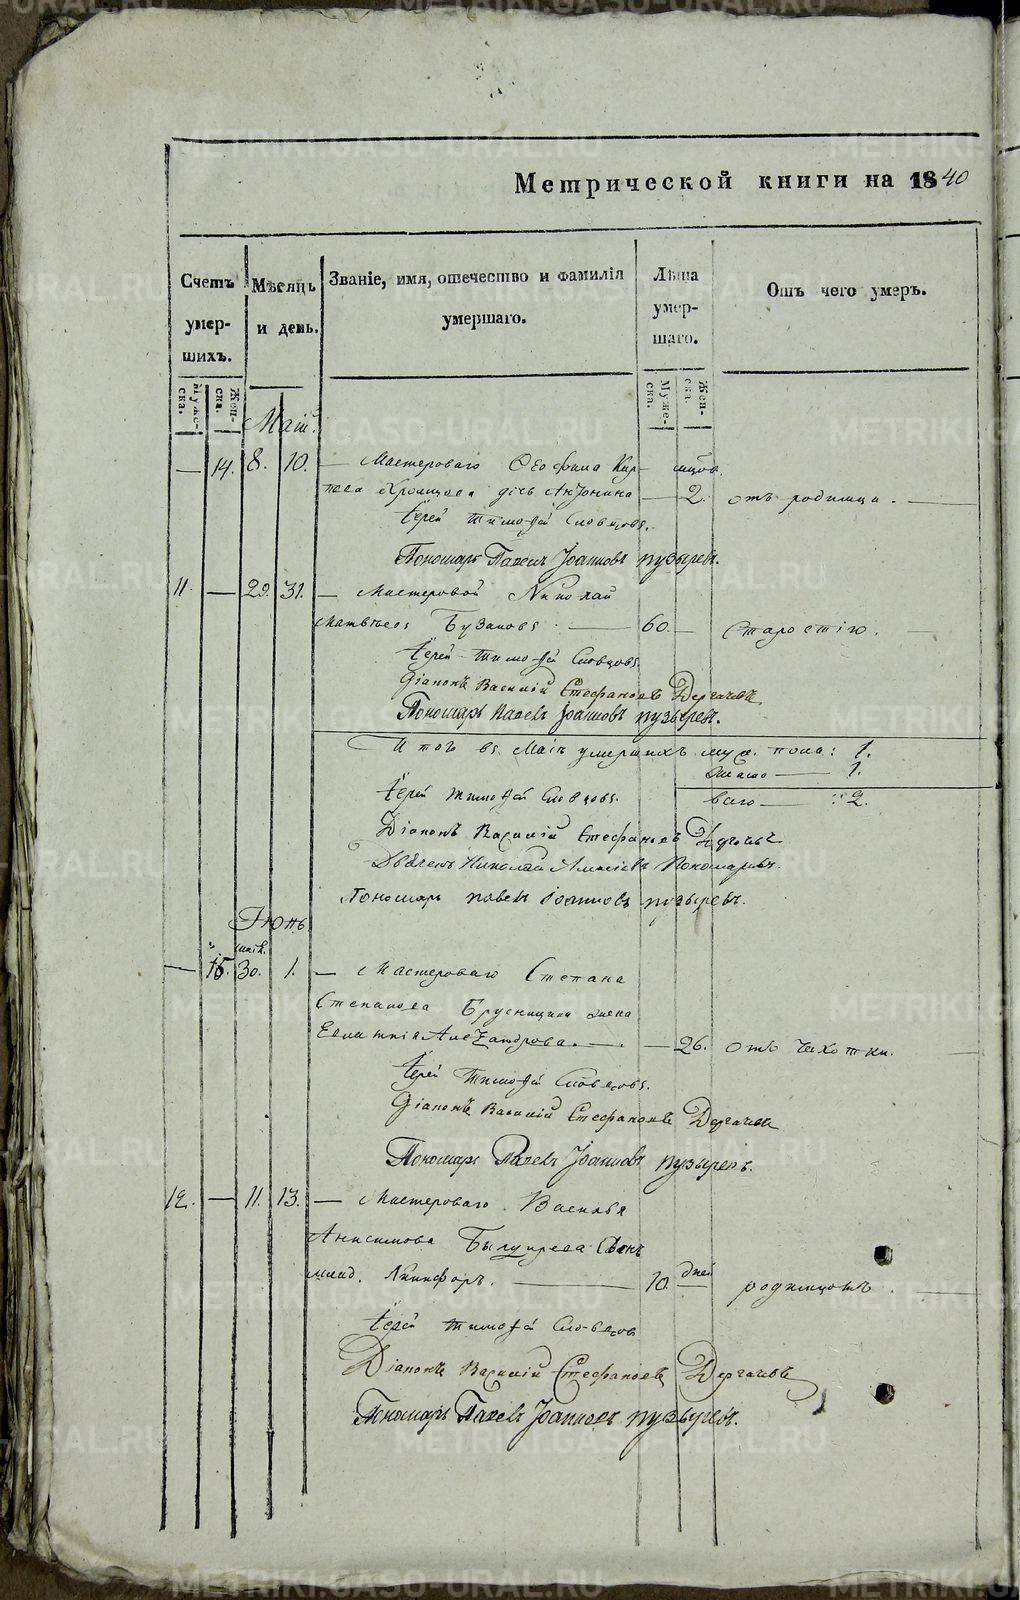 Метрической книги на 1840
Счетъ умершихъ.
Мужеска.
Женска.
Мѣсяцъ и день.
Званіе, имя, отечество и фамилія умершаго.
Лѣта умершаго.
Мужеска.
Женска.
Отъ чего умеръ.
Маій.
— 14. 8. 10. — Мастероваго
дочь Антонина — 2. отъ родимца.
Іерей Тимоѳей Словцовъ.
Пономарь Павелъ Іоанновъ Пузыревъ.
11. — 29. 31. — Мастеровой Николай
Матвѣевъ Бузановъ. — 60. — Старостію.
Іерей Тимоѳей Словцовъ.
Діаконъ Василій Стефановъ Дергачевъ
Пономарь Павелъ Іоанновъ Пузыревъ.
Итого въ Маіѣ умершихъ муж. пола: 1.
женско — 1.
всего — 2.
Іерей Тимоѳей Словцовъ.
Діаконъ Василій Стефановъ Дергачевъ
Дьячекъ Николай Алексіевъ Пономаревъ.
Пономарь Павелъ Іоанновъ Пузыревъ.
Іюнь
маія.
— 15. 30. 1. — Мастероваго Степана
Степанова Брусницина жена
Александрова. — 26. отъ чахотки.
Іерей Тимоѳей Словцовъ.
Діаконъ Василій Стефановъ Дергачевъ
Пономарь Павелъ Іоанновъ Пузыревъ.
12. — 11. 13. — Мастероваго Василья
Анисимова сынъ
млад. Никифоръ. — 10. дней родимцомъ.
Іерей Тимоѳей Словцовъ
Діаконъ Василій Стефановъ Дергачевъ
Пономарь Павелъ Іоанновъ Пузыревъ.
METRIKI.GASO-URAL.RU